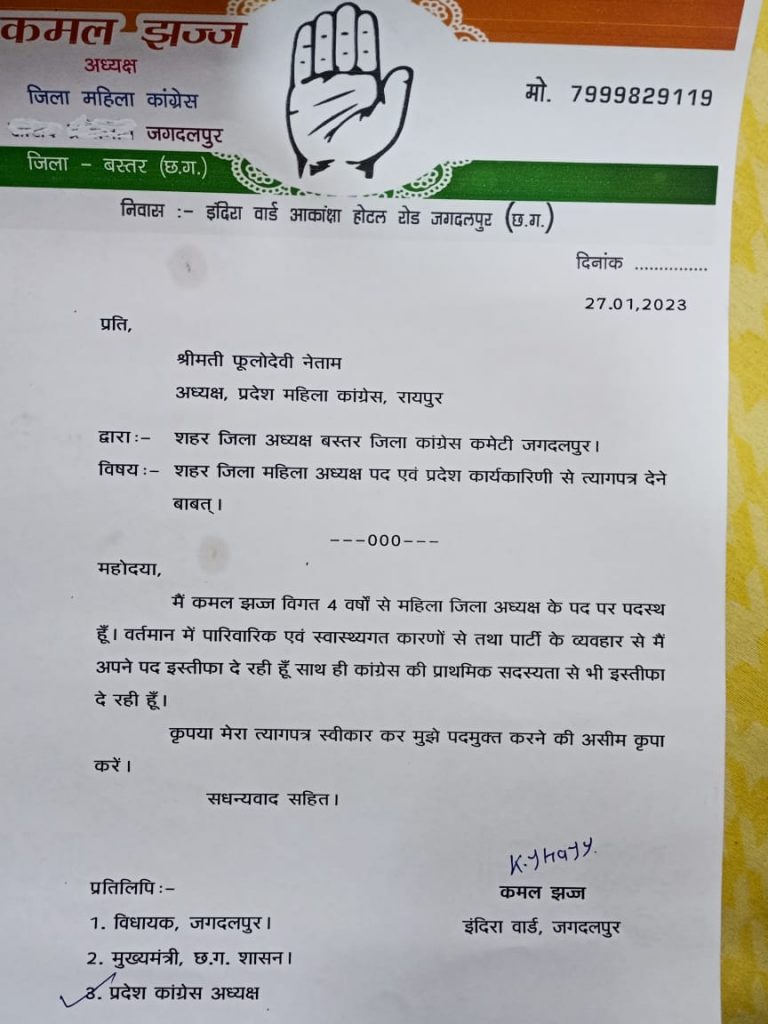 कमल झज्ज
अध्यक्ष
जिला महिला कांग्रेस
जगदलपुर
जिला - बस्तर (छ.ग.)
मो. 7999829119
निवास :- इंदिरा वार्ड आकांक्षा होटल रोड जगदलपुर (छ.ग.)
दिनांक ...............
27.01,2023
प्रति,
श्रीमती फूलोदेवी नेताम
अध्यक्ष, प्रदेश महिला कांग्रेस, रायपुर
द्वारा:- शहर जिला अध्यक्ष बस्तर जिला कांग्रेस कमेटी जगदलपुर।
विषय:- शहर जिला महिला अध्यक्ष पद एवं प्रदेश कार्यकारिणी से त्यागपत्र देने
बाबत्।
---000---
महोदया,
मैं कमल झज्ज विगत 4 वर्षों से महिला जिला अध्यक्ष के पद पर पदस्थ
हूँ। वर्तमान में पारिवारिक एवं स्वास्थ्यगत कारणों से तथा पार्टी के व्यवहार से मैं
अपने पद इस्तीफा दे रही हूँ साथ ही कांग्रेस की प्राथमिक सदस्यता से भी इस्तीफा
दे रही हूँ।
कृपया मेरा त्यागपत्र स्वीकार कर मुझे पदमुक्त करने की असीम कृपा
करें।
सधन्यवाद सहित।
K.Jhajj.
कमल झज्ज
इंदिरा वार्ड, जगदलपुर
प्रतिलिपि:-
1. विधायक, जगदलपुर।
2. मुख्यमंत्री, छ.ग. शासन।
3. प्रदेश कांग्रेस अध्यक्ष